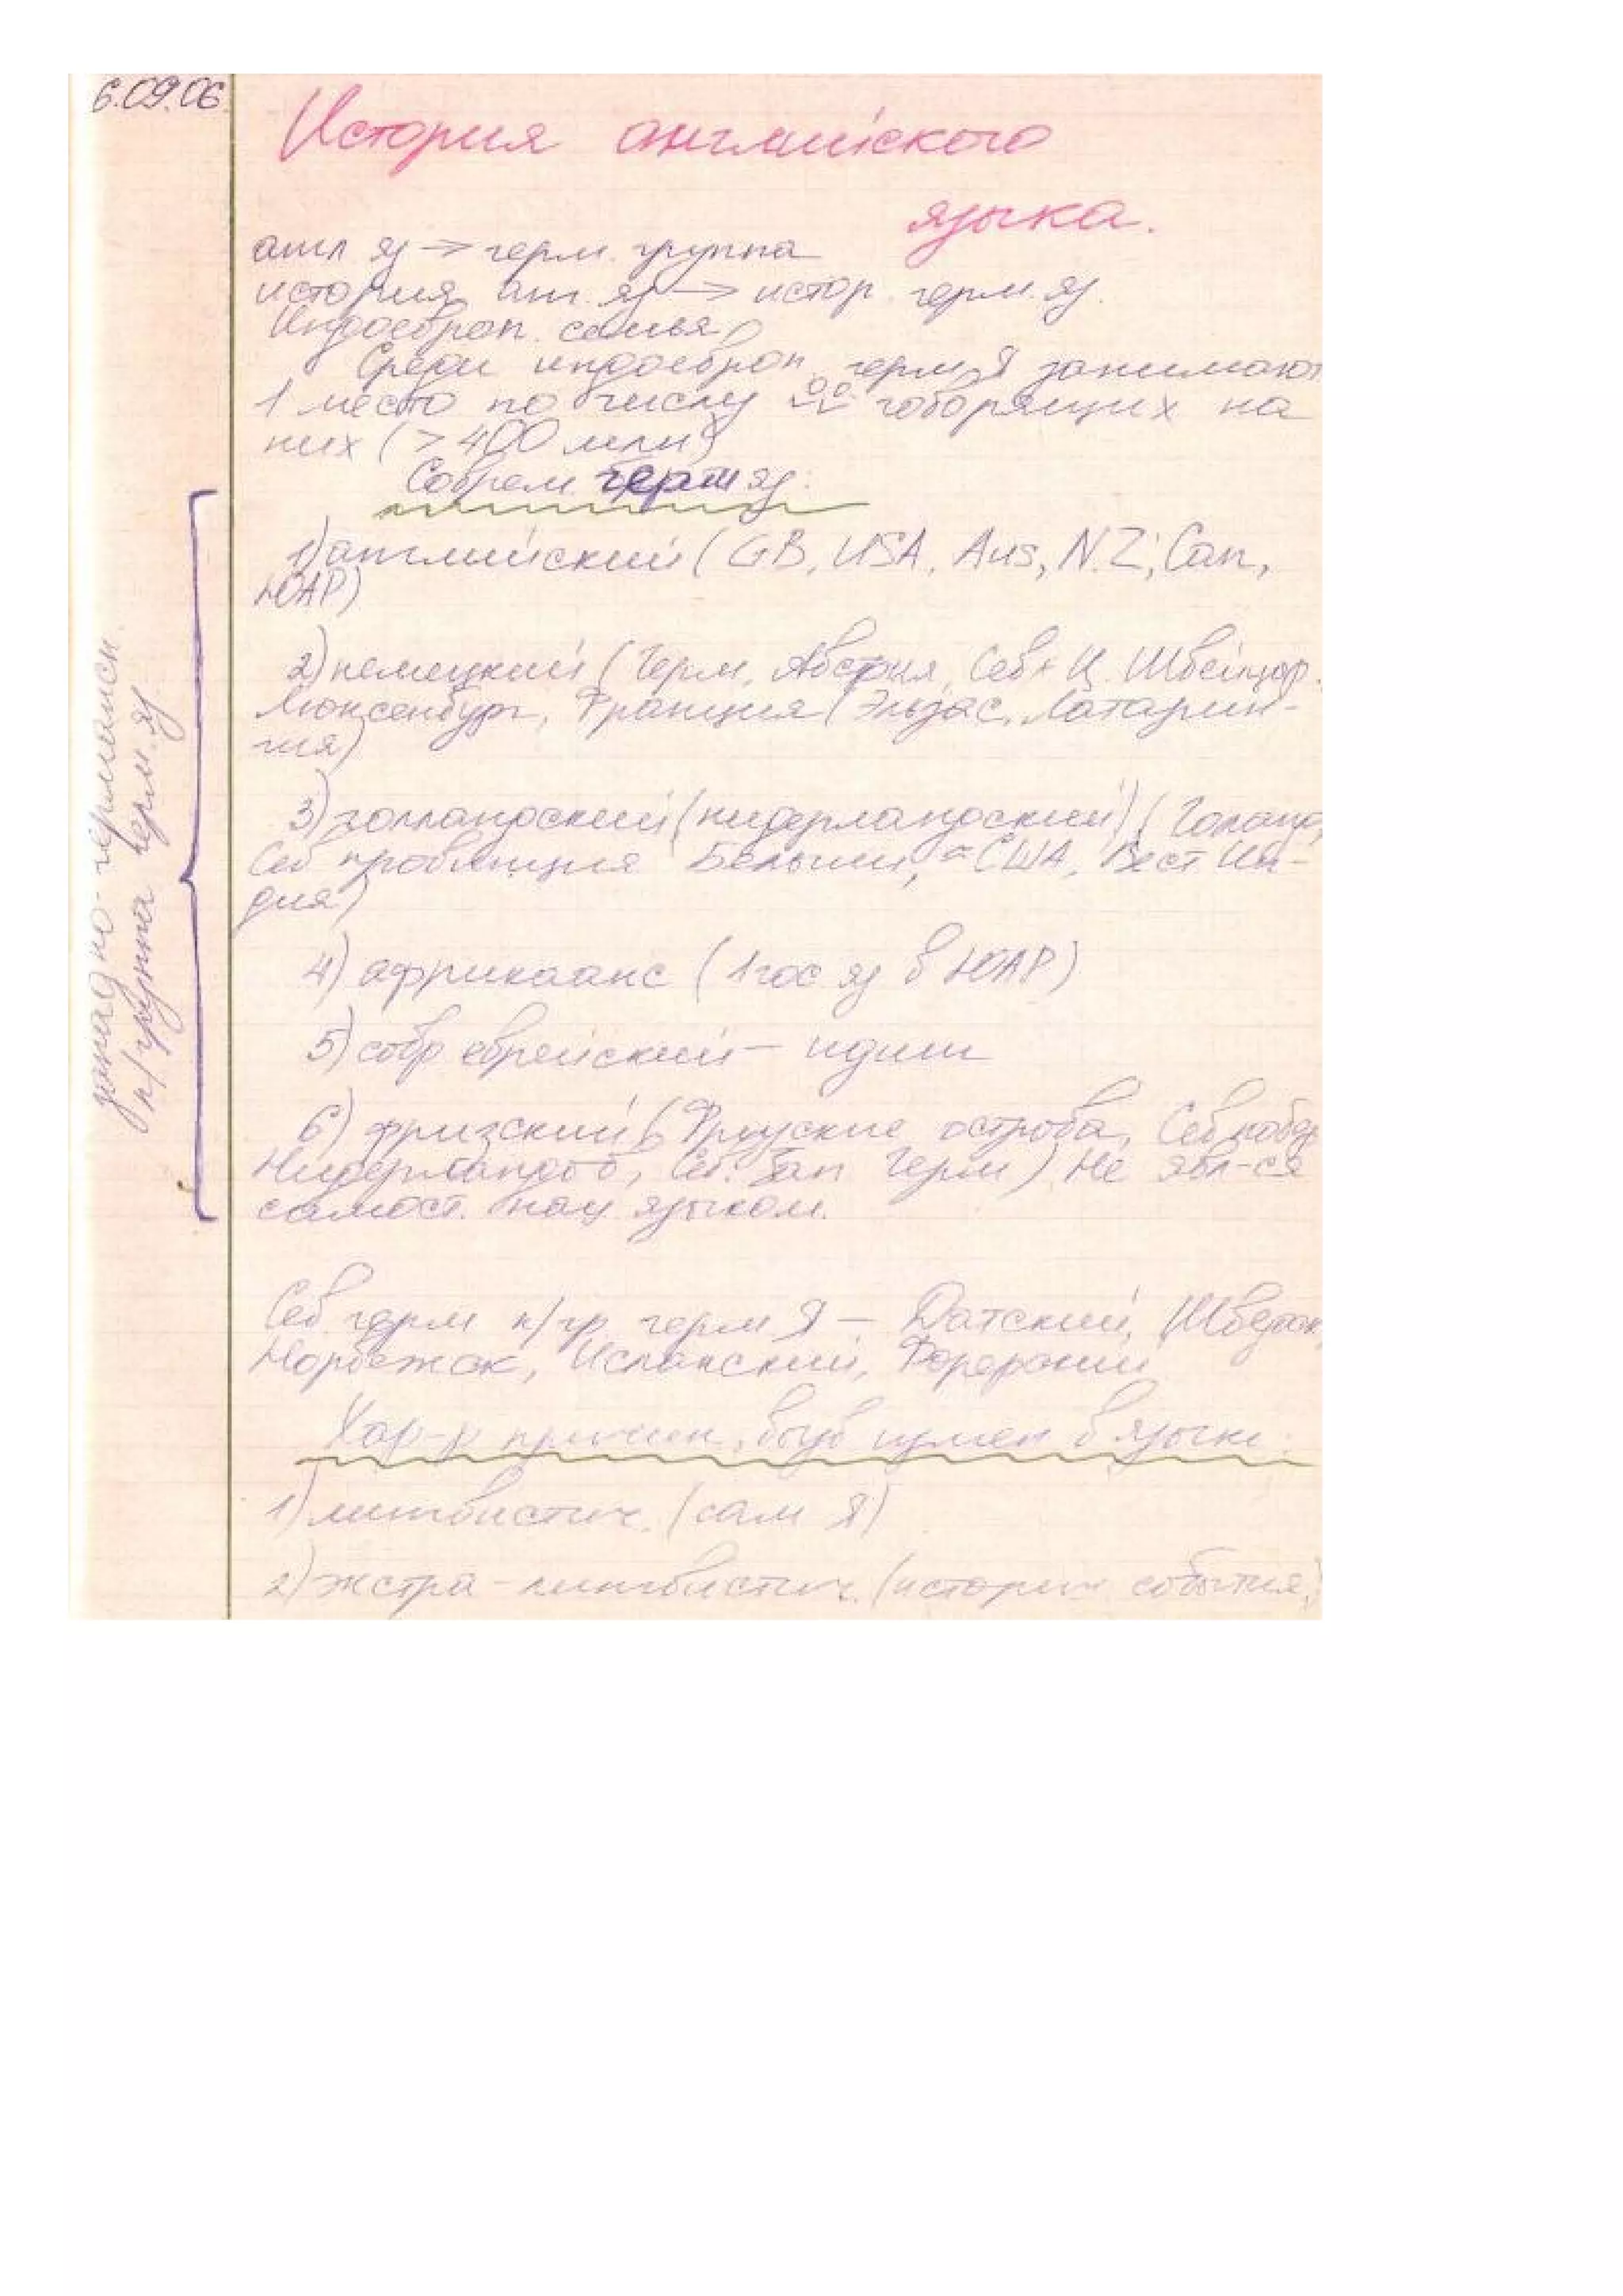 6.09.06
История английского
языка.
англ яз -> герм. группа
история анг. яз -> истор. герм. яз.
Индоевроп. семья
Среди индоевроп. герм Я занимают
1 место по числу говорящих на
них (>400 млн)
Соврем. герм яз:
1) английский (GB, USA, Aus, N.Z; Can,
ЮАР)
2) немецкий (Герм, Австрия, Сев+Ц. Швейцар.
Люксенбург, Франция (Эльзас, Латарин-
гия)
3) голландский (нидерландский) (Голанд,
Сев провинция Бельгии, ≈ США, Вест Ин-
дия)
4) африкаанс (1 гос яз в ЮАР)
5) совр еврейский - идиш
6) фризский (Фризские острова, Сев побер
Нидерландов, Сев. Зап Герм) Не явл-ся
самост. нац языком.
западно-германск.
п/группа герм. яз
Сев. герм п/гр герм Я - Датский, Шведск,
Норвежск, Исланский, Фарерский
Хар-р причин, выв измен в языке:
1) лингвистич. (сам Я)
2) экстра-лингвистич. (историч события)